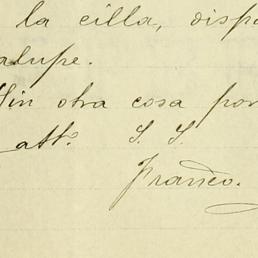 la cilla, dispo
alupe.
Sin otra cosa por
att. S. S.
Franco.